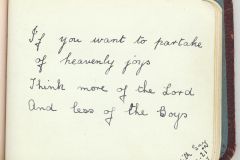 If you want to partake
of heavenly joys
Think more of the Lord
And less of the Boys